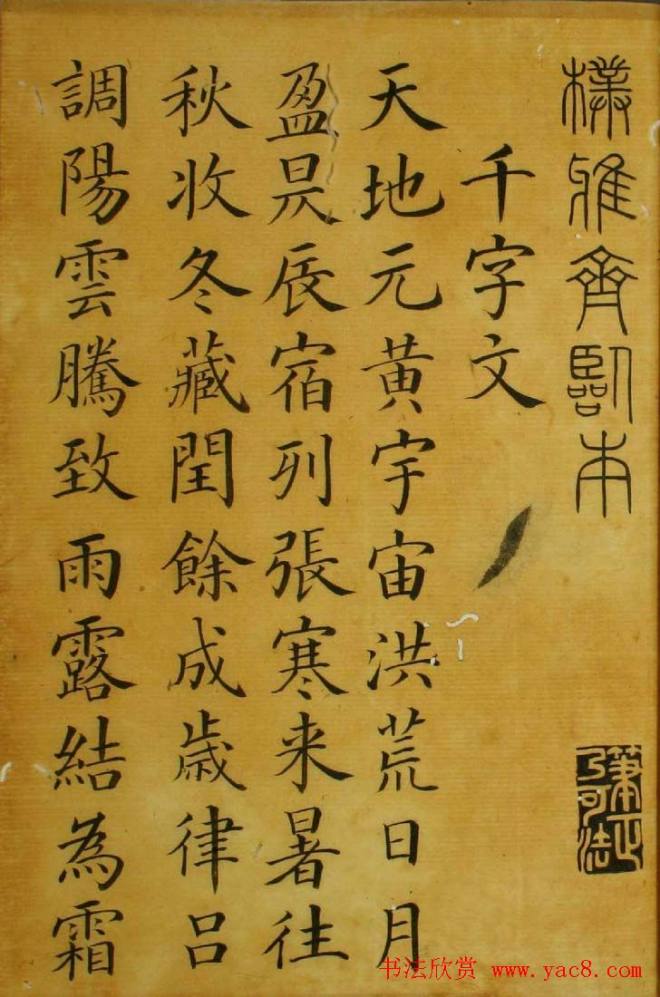 樸雅齋臨本
筆正乃可法
千字文
天地元黄宇宙洪荒日月
盈昃辰宿列張寒来暑往
秋收冬藏閏餘成歲律吕
調陽雲騰致雨露結為霜
书法欣赏 www.yac8.com